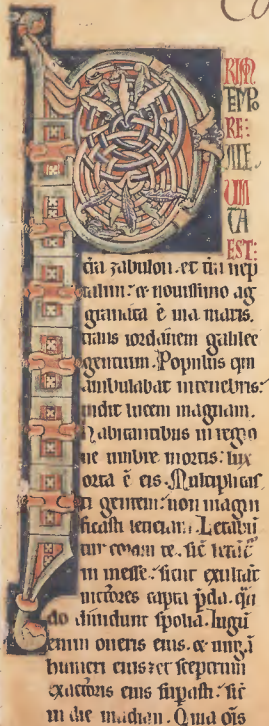 P
RIM
TEMPO
RE:
ALLE
UIA
TA
EST:
t̄ra zabulon. et t̄ra nep
talim: & nouissimo ag
grauata ē uia maris.
trans iordanem galilee
gentium. Populus qui
ambulabat in tenebris:
uidit lucem magnam.
habitantibus in regio
ne umbre mortis: lux
orta ē eis. Multiplicas
ti gentem: non magni
ficasti leticiam. Letabū
tur coram te. sic̄ letāt̄
in messe. sicut exultāt
uictores capta p̄da. q̄n
do diuidunt spolia. Iugū
enim oneris eius. & uirgā
humeri eius: et sceptrum
exactoris eius supasti: sic̄
in die madian. Quia om̄s